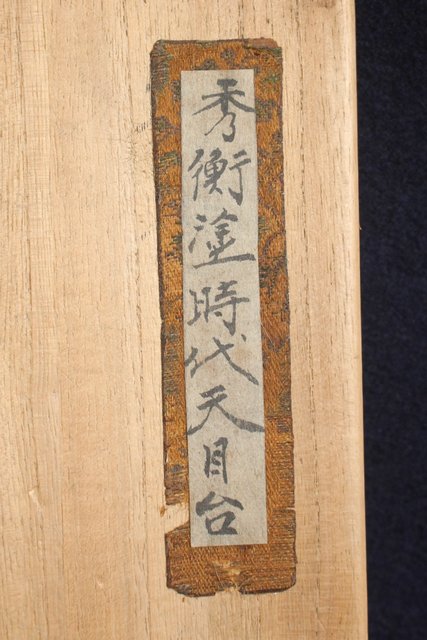 秀衡塗時代天目台